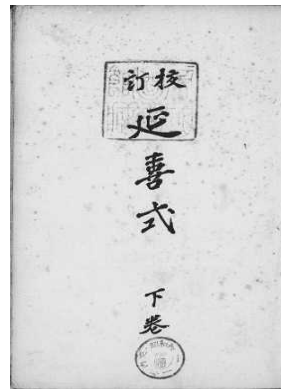 校訂
延喜式
下巻